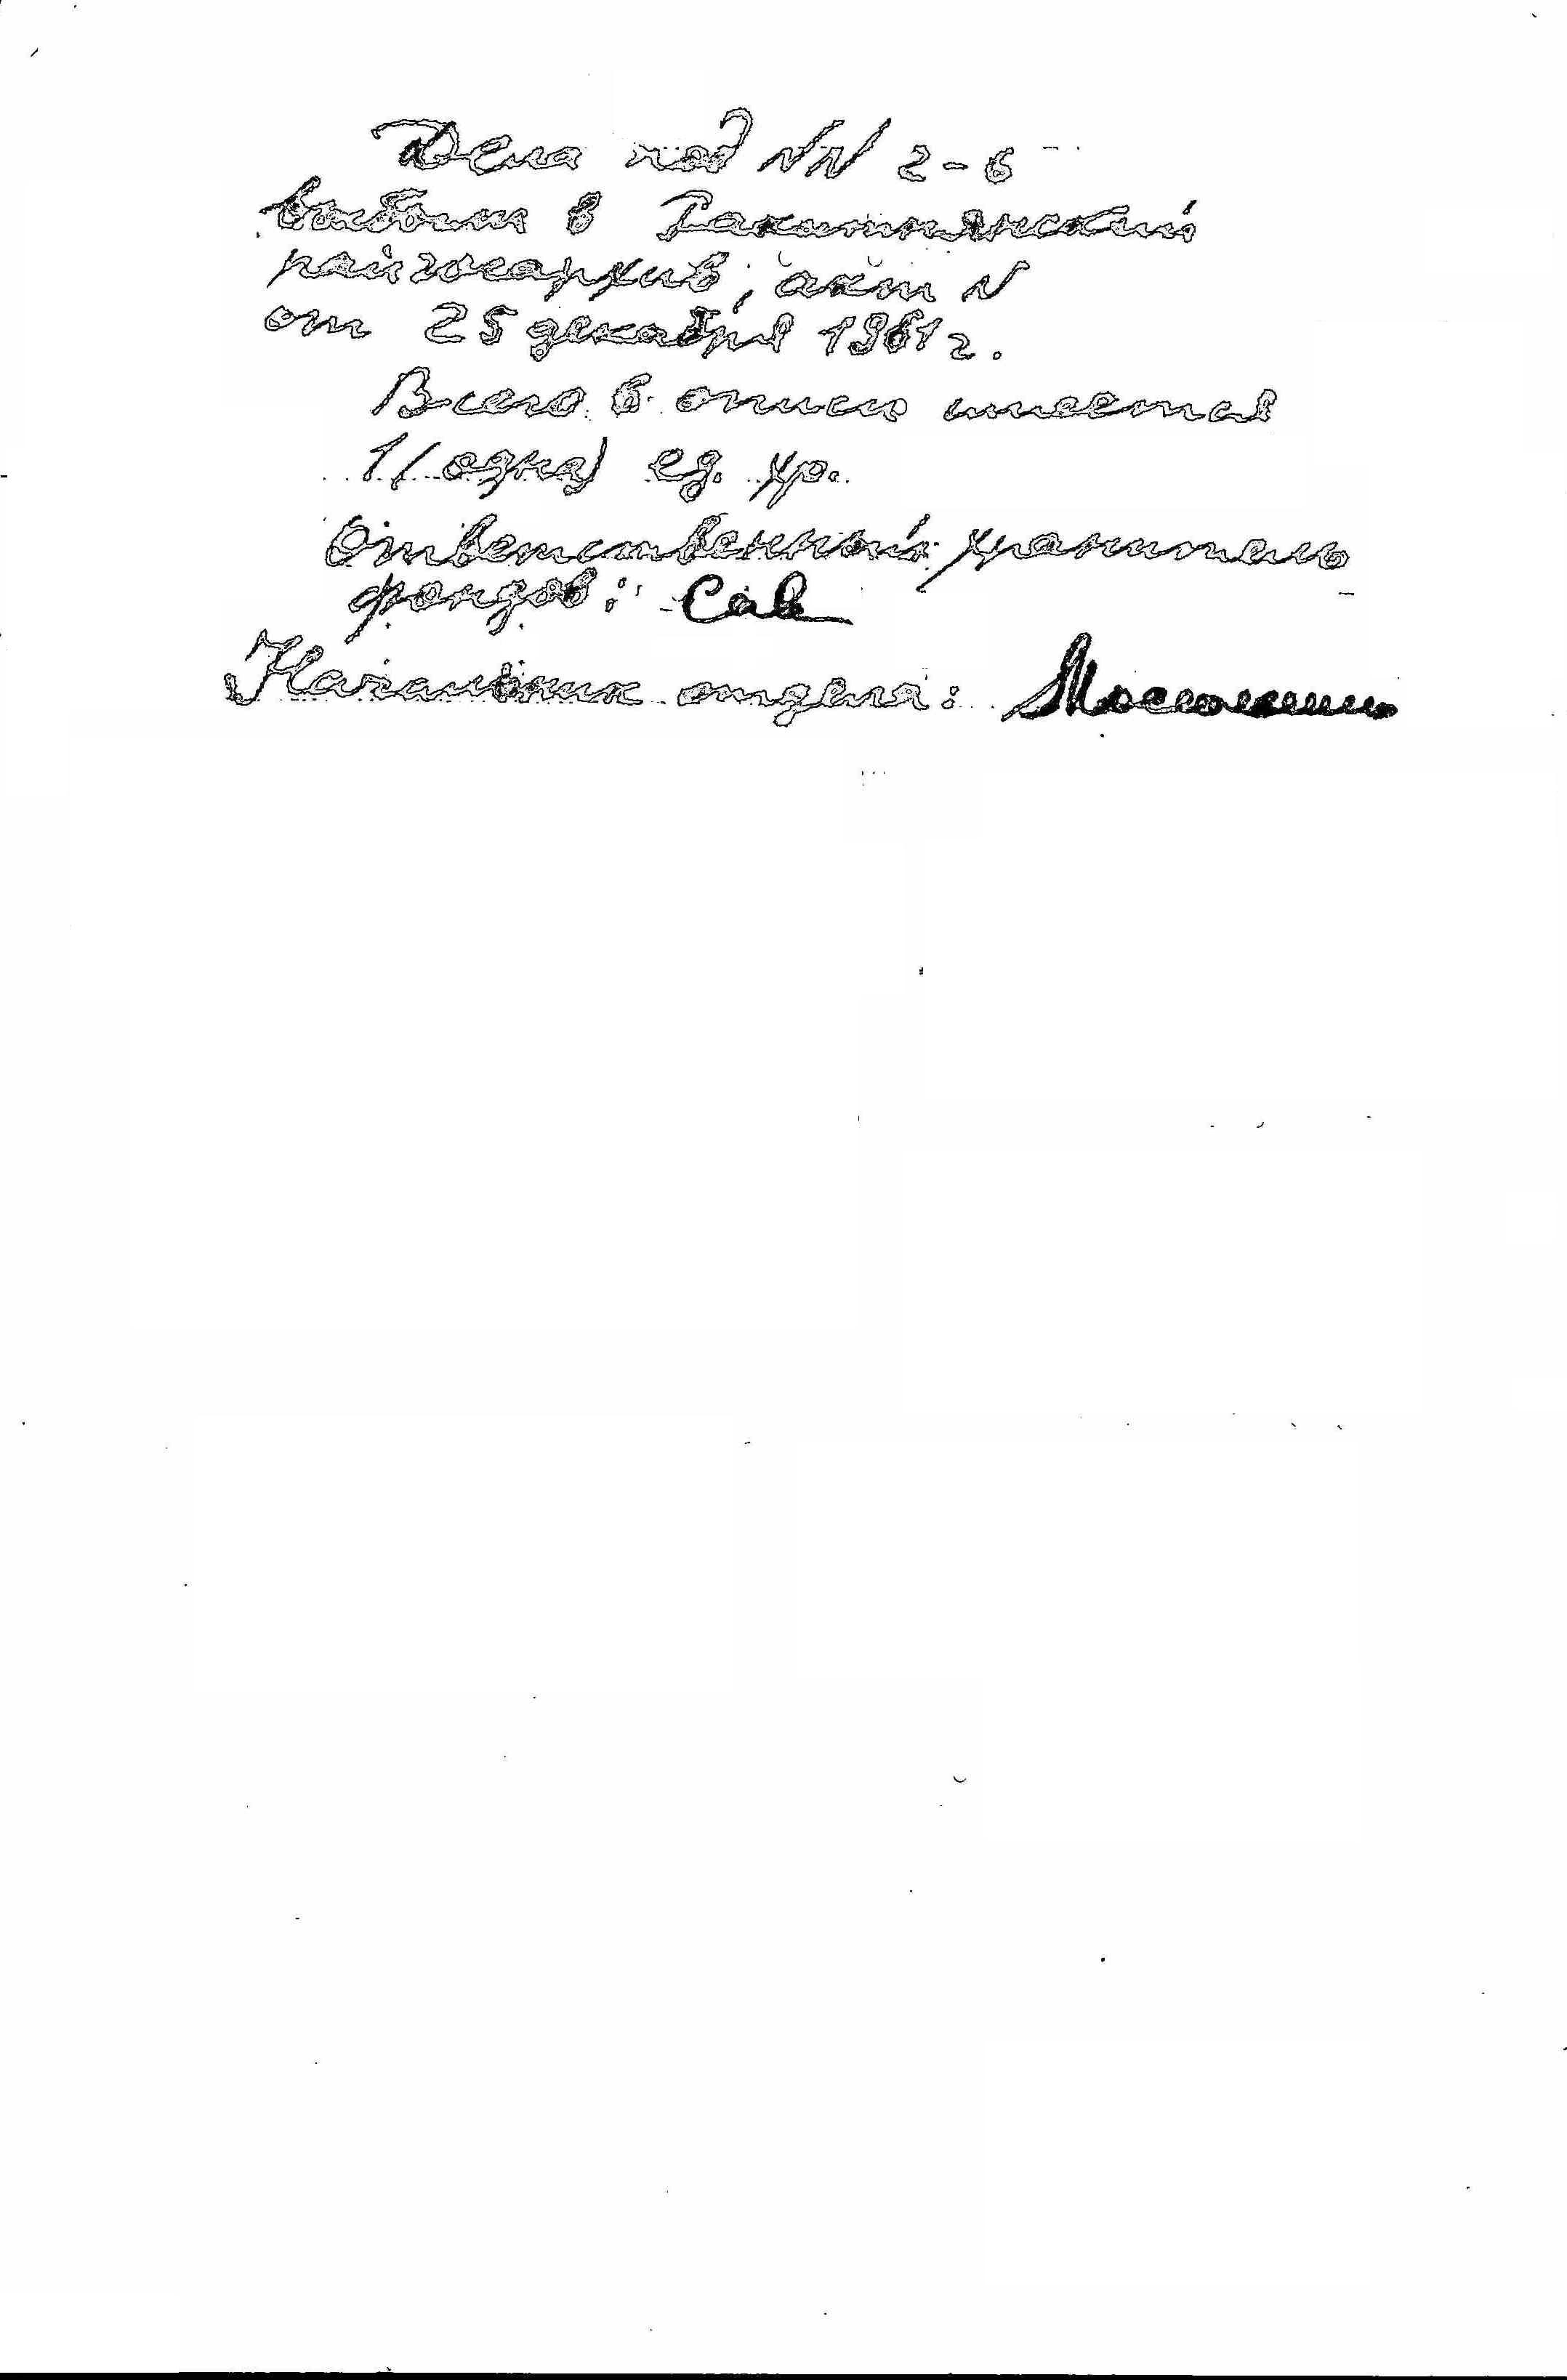 Дела под NN 2-6
выбыли в Ракитянский
райгосархив, акт N
от 25 декабря 1961 г.
Всего в описи имеется
1 (одна) ед. хр.
Ответственный хранитель
фондов:
Начальник отдела: